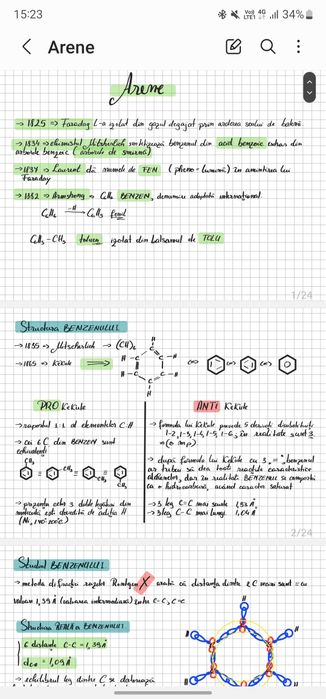 15:23
Vo))
4G
LTE1
34%
Arene
Arene
→ 1825 => Faraday l-a izolat din gazul degajat prin arderea seului de balenă.
→ 1834 => chimistul Mitscherlich sintetizează benzenul din acid benzoic extras din
arborele benzoe (arborele de smirnă)
→ 1837 → Laurent dă numele de FEN (pheno = lumină) în amintirea lui
Faraday
→ 1882 → Armstrong → C6H6 BENZEN, denumire adoptată internațional
C6H6 -H→ C6H5 fenil
C6H5 - CH3 toluen izolat din balsamul de TOLU
1/24
Structura BENZENULUI
→ 1835 → Mitscherlich → (CH)6
→ 1865 → Kekule
H
H-C C-H
H-C C-H
H
PRO Kekule
ANTI Kekule
→ raportul 1:1 al elementelor C:H
→ cu 6C din BENZEN sunt
echivalenți
CH3
CH3
CH3
CH3
→ prezența celor 3 duble legături din
moleculă est dovedită de adiția H
→ formula lui Kekule prevede 5 derivați disubstituiți
1-2, 1-3, 1-4, 1-5, 1-6, în realitate sunt 3
(o m p)
→ după formula lui Kekule cu 3 =, benzenul
ar trebui să dea toate reacțiile caracteristice
alchenelor, dar în realitate BENZENUL se comportă
ca o hidrocarbură, având caracter saturat
→ 3 leg C=C mai scurte 1,33 Å
→ 3 leg C-C mai lungi 1,54 Å
2/24
Studiul BENZENULUI
→ metoda difracției razelor Röntgen X arată că distanța dintre 2 C mari sunt = cu
valoare 1,39 Å (valoarea intermediară) între C-C, C=C
Structura REALĂ a BENZENULUI
6 distanțe C-C = 1,39 Å
dC-H = 1,09 Å
→ echilibrul leg dintre C se datorează
H
H
H
H
H